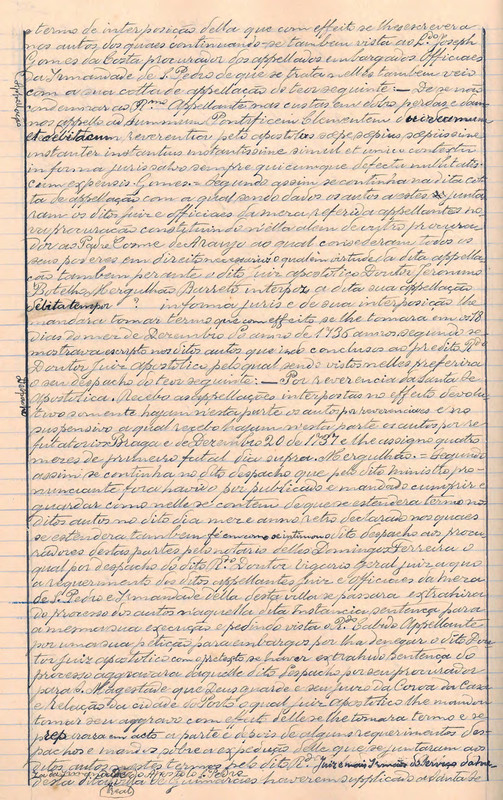 termo de interposição della que com effeito se lhe escrevera
nos autos dos quaes continuando-se tambem vista ao L.do Joseph
Gomes da Costa procurador dos appellados embargados Officiaes
da Irmandade de S. Pedro de que se trata nelles tambem veio
com a sua cotta de appellação do teor seguinte: — De se não
Appellação
condemnar as R.mo Appellante nas custas em dobro, perdas e dam-
nos appello ad Summum Pontificem Clementem
et debitacum, reverenter peto apostolos sepe, sepius, sepissime
instanter instantius instantissime simul et unico contextu
in forma juris salvo semper quicumque defectu nulitatis
cum expensis. Gomes = Segundo assim se continha na dita cot-
ta de appellação com a qual sendo dados os autos a estes juntа-
ram os ditos juiz e officiaes da meza referida appellantes no-
va procuração constituindo nella alem de outro procura-
dor ao Padre Cosme de Araujo ao qual concederam todos os
seus poderes em direito necessarios o qual em virtude da dita appella-
ção tambem perante o dito juiz apostolico Doutor Jeronimo
Botelho Mergulhão Barreto interpoz a dita sua appellação
? in forma juris e da sua interposição lhe
mandara tomar termo que com effeito se lhe tomara em os 18
dias do mez de Dezembro do anno de 1736 annos, segundo se
mostrava escripto nos ditos autos que indo conclusos ao predito R.do
Doutor Juiz Apostolico pelo qual sendo vistos nelles preferira
o seu despacho do teor seguinte: — Por reverencia da Santa Sé
Despacho
Apostolica. Recebo as appellações interpostas no effeito devolu-
tivo somente hajam nesta parte os autos por reverenciaes e no
suspensivo a qual recebo hajam nesta parte os autos por re-
futatorios Braga e de Dezembro 20 de 1737 e lhe assigno quatro
mezes de primeiro fatal dia supra. Mergulhão. = Segundo
assim se continha no dito despacho que pelo dito ministro pro-
nunciante fora havido por publicado e mandado cumprir e
guardar como nelle se contem de que se estendera termo nos
ditos autos no dito dia mez e anno retro declarado nos quaes
se estendera tambem fé em como se intimou o dito despacho aos procu-
radores destas partes pelo notario delles Domingos Ferreira o
qual por despacho do dito R.do Doutor Vigario Geral juiz a quo
a requerimento dos ditos appellantes juiz e officiaes da meza
de S. Pedro e Irmandade della desta villa se passara extrahira
do processo dos autos naquella dita Instancia, sentença para
a mesma sua execução e pedindo vista o R.do Cabido Appellante
por uma sua petição para embargos por lha denegar o dito Dou-
tor juiz apostolico com o pretexto se haver extrahido sentença do
processo aggravara daquelle dito despacho por seu procurador
para S. Magestade que Deus guarde e seu juizo da Coroa da Casa
e Relação da cidade do Porto o qual juiz apostolico lhe mandou
tomar seu aggravo com effeito delle se lhe tomara termo e se
preparara em auto a parte e depois de alguns requerimentos des-
pachos e mandos, sobre a expedição delle que se juntaram aos
ditos autos nestes termos pelo dito R.do Juiz e mais Irmãos do Serviço da Irman-
dade do Apostolo S. Pedro
desta dita villa de Guimarães haverem supplicado a Santa Sé
(Real)